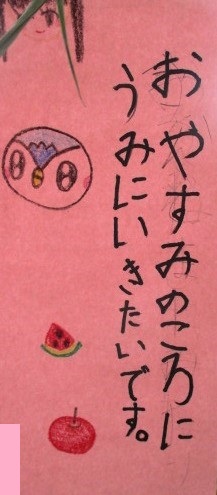 おやすみのころに
うみにいきたいです。